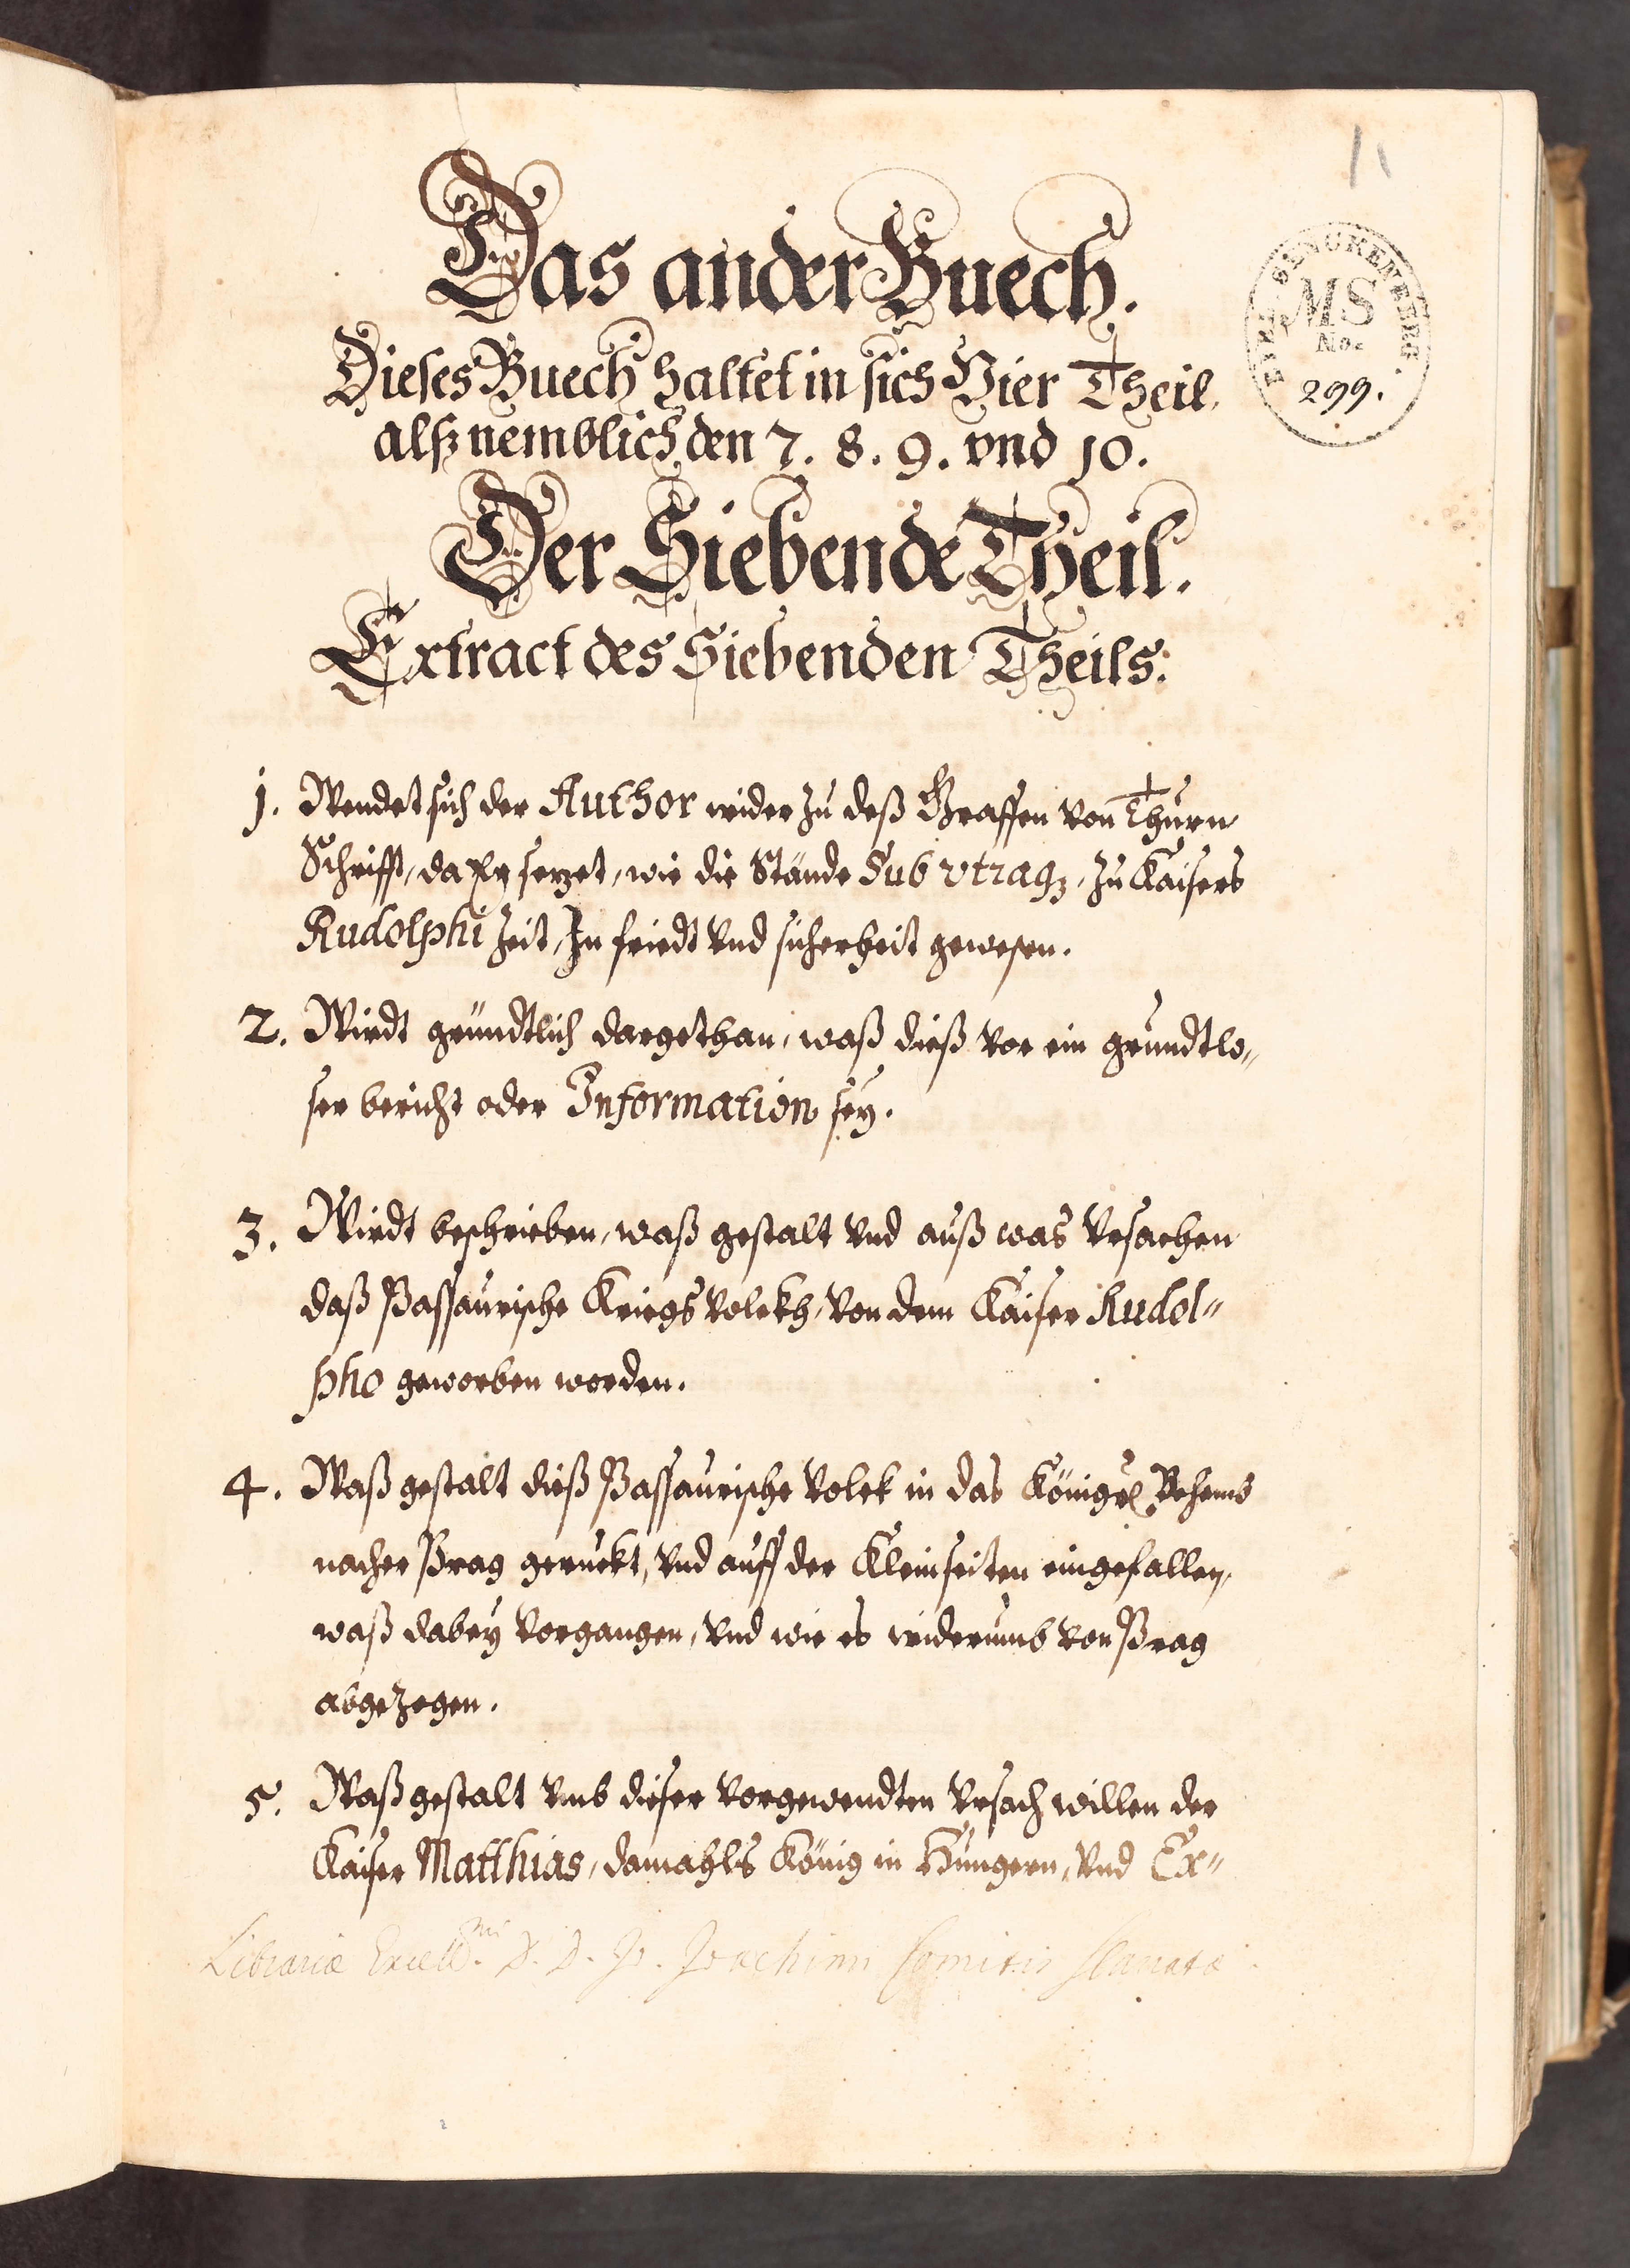 11
Das ander Buech.
Dieses Buech haltet in sich Vier Theil,
alß nemblich den 7. 8. 9. vnd 10.
BIBL. SENCKENBERG.
MS
No.
299.
Der Siebende Theil.
Extract des Siebenden Theils:
1. Wendet sich der Author wider zu deß Graffen von Thurn
Schrifft, da Er sezet, wie die Stände Sub vtraq3, zu Kaisers
Rudolphi Zeit, In friedt vnd sicherheit gewesen.
2. Wirdt gründtlich dargethan, waß dieß vor ein grundtlo„
ser bericht oder Information sey.
3. Wirdt beschrieben, waß gestalt vnd auß was Vrsachen
daß Passaurische Kriegs Volckh, von dem Kaiser Rudol„
pho geworben worden.
4. Waß gestalt dieß Passaurische Volck in das Königr. Behemb
nacher Prag geruckt, vnd auff der Kleinseiten eingefallen,
waß dabey vorgangen, vnd wie es widerumb von Prag
abgezogen.
5. Waß gestalt vmb dieser vorgewendten Vrsach willen der
Kaiser Matthias, damahls König in Hungern, vnd Er„
Librariæ Excell.mi D. D. Jo. Joachimi Comitis Slavata.